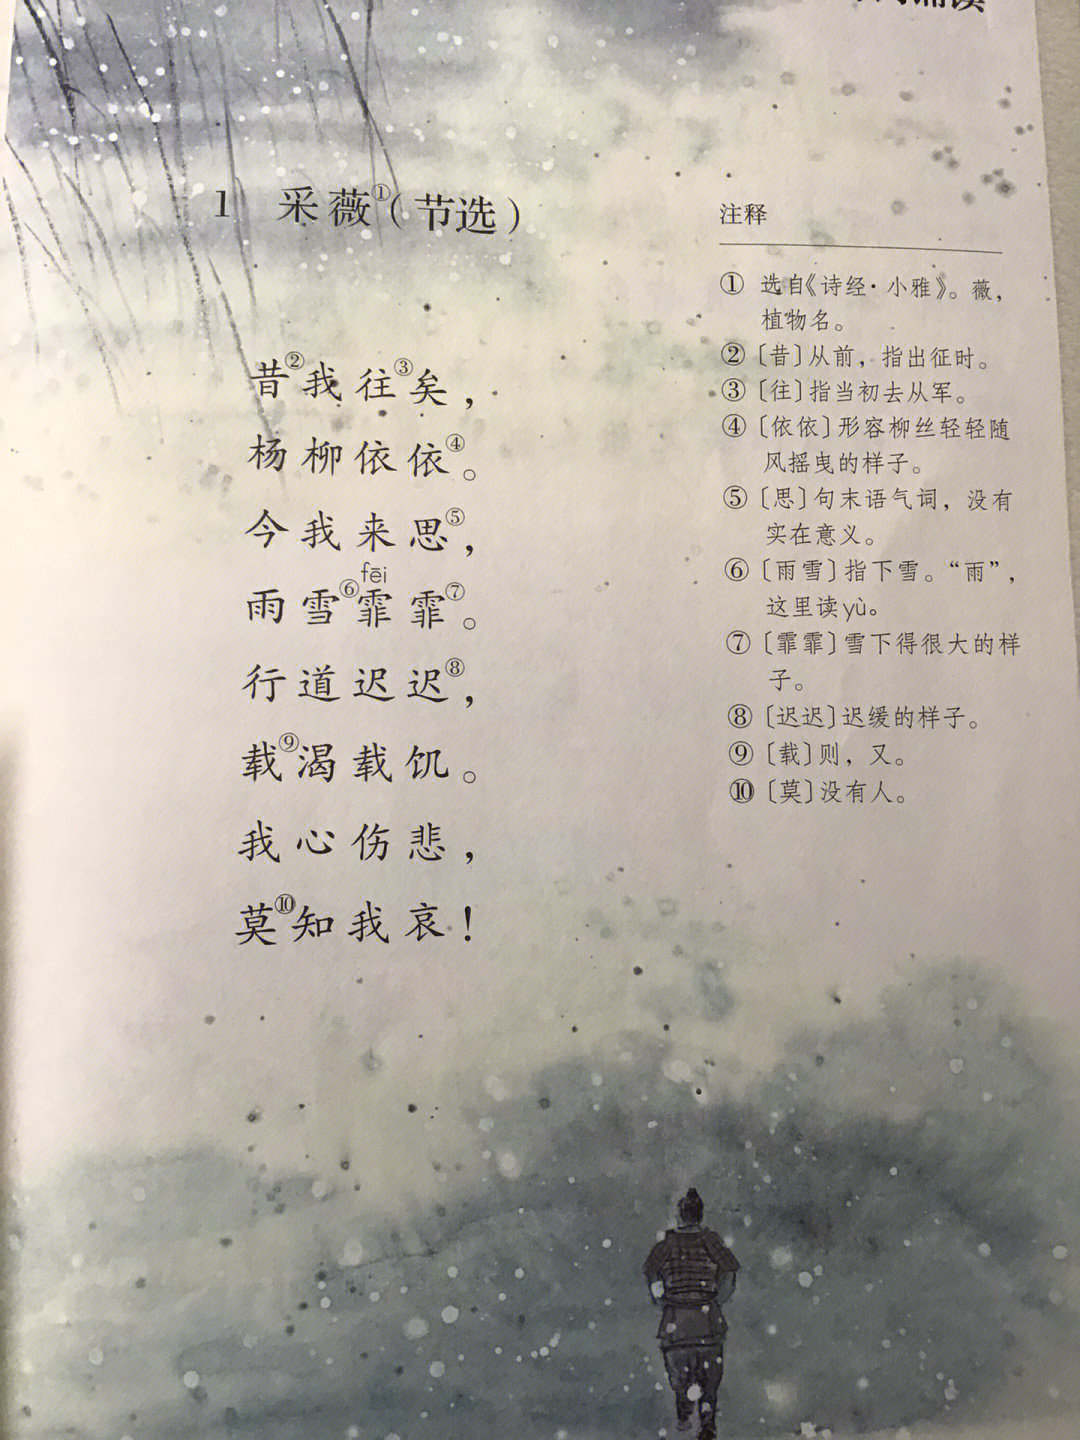 诵读
1 采薇①（节选）
昔②我往③矣，
杨柳依依④。
今我来思⑤，
fēi
雨雪⑥霏霏⑦。
行道迟迟⑧，
载⑨渴载饥。
我心伤悲，
莫⑩知我哀！
注释
① 选自《诗经·小雅》。薇，
植物名。
②〔昔〕从前，指出征时。
③〔往〕指当初去从军。
④〔依依〕形容柳丝轻轻随
风摇曳的样子。
⑤〔思〕句末语气词，没有
实在意义。
⑥〔雨雪〕指下雪。“雨”，
这里读yù。
⑦〔霏霏〕雪下得很大的样
子。
⑧〔迟迟〕迟缓的样子。
⑨〔载〕则，又。
⑩〔莫〕没有人。